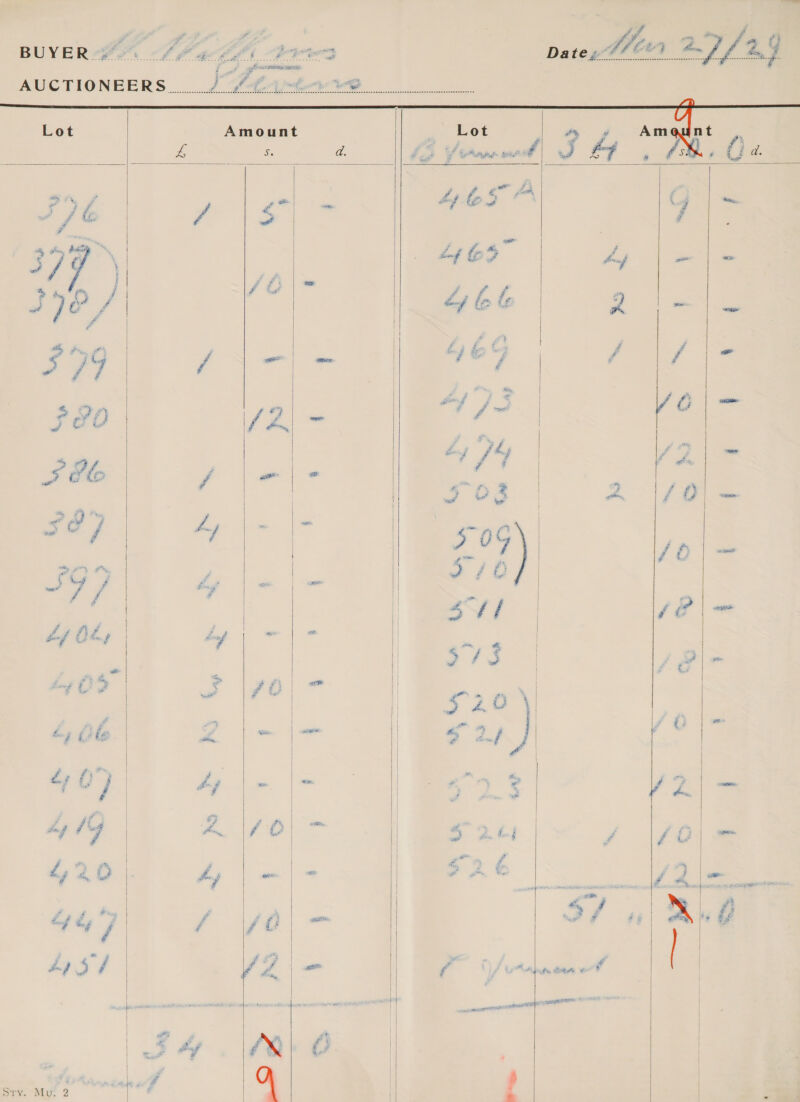 BUYER W. Williams Date, Mar 27/29
AUCTIONEERS Stevens
Lot Amount
£ s. d.
376 1 5 -
377)
378) 10 -
379 1 - -
380 12 -
386 1 - -
387 4 - -
397 4 - -
404 4 - -
405 3 10 -
406 2 - -
407 4 - -
419 2 10 -
420 4 - -
447 1 10 -
451 12 -
34 10. 0
9
Srv. Mu. 2
Lot Amount
£ s. d.
B 34 . 10. 0
9
465 A 9 -
465 4 - -
466 2 - -
469 1 1 -
473 10 -
474 12 -
503 2 10 -
509)
510) 10 -
511 18 -
513 18 -
520)
521) 10 -
523 12 -
524 1 10 -
526 12 -
51 " 2 " 0
1